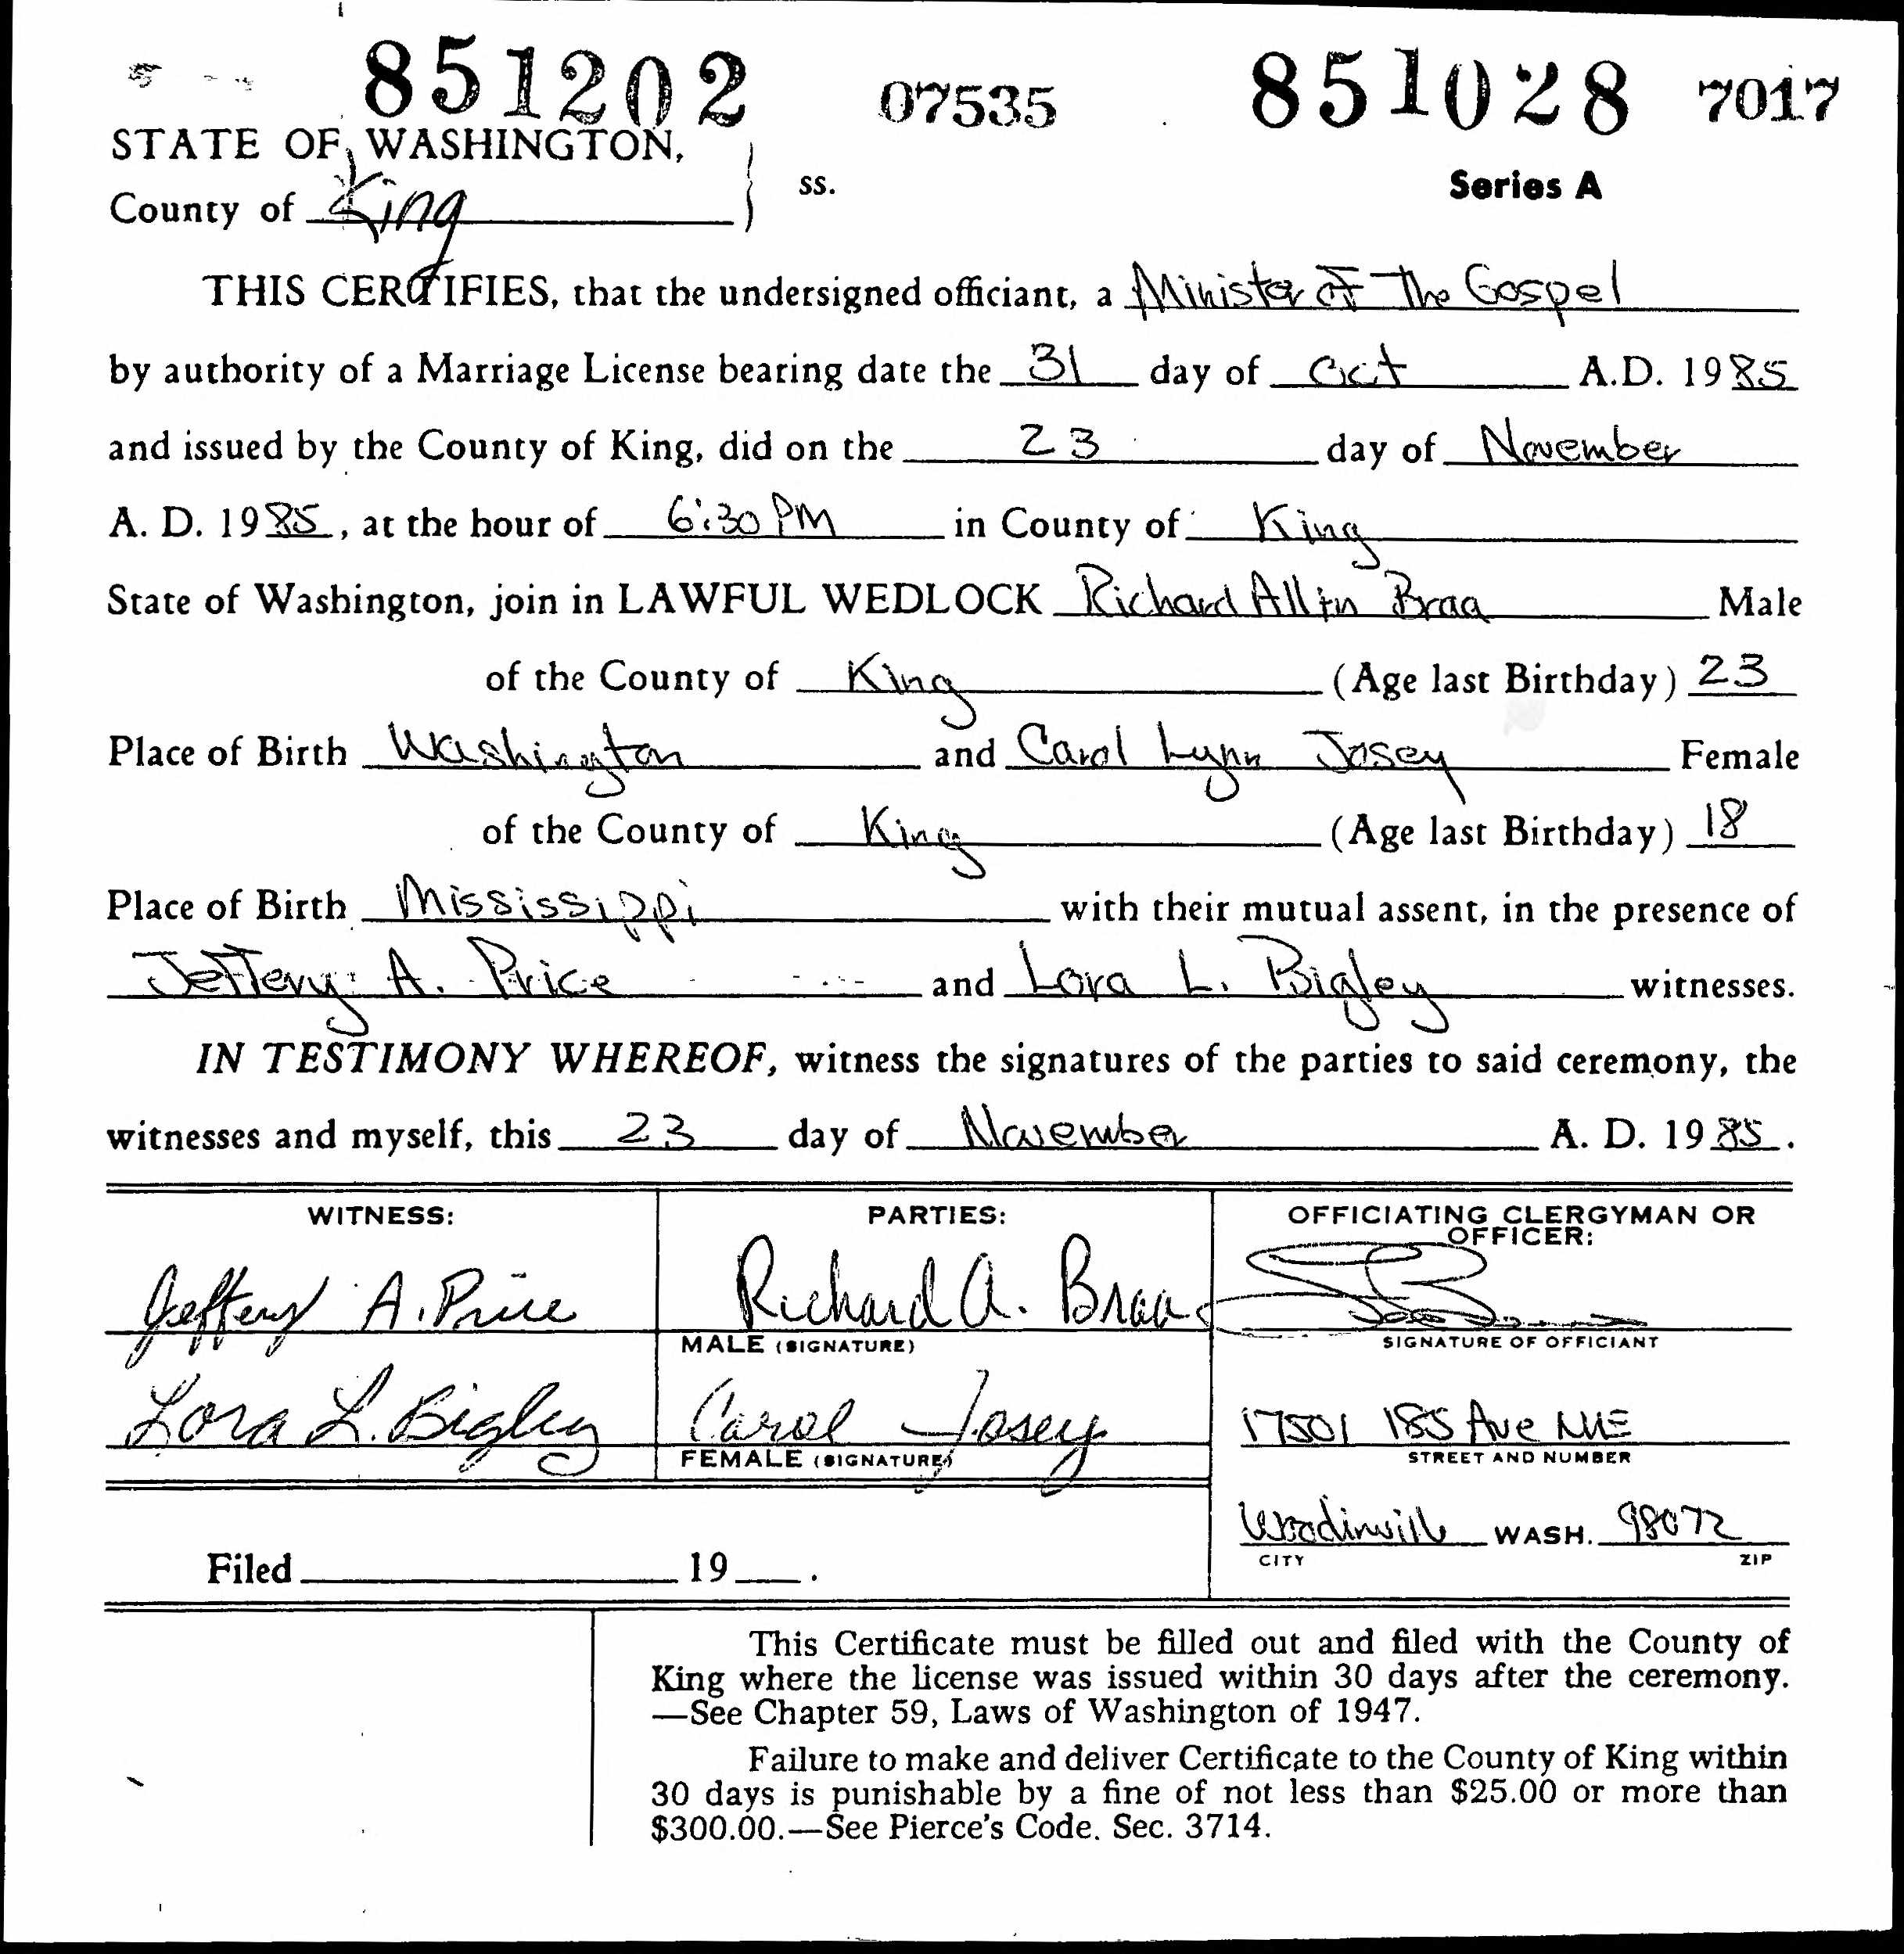 851202 07535 851028 7017
STATE OF WASHINGTON,
ss.
Series A
County of King
THIS CERTIFIES, that the undersigned officiant, a Minister of The Gospel
by authority of a Marriage License bearing date the 31 day of Oct A.D. 1985
and issued by the County of King, did on the 23 day of November
A. D. 1985, at the hour of 6:30 PM in County of King
State of Washington, join in LAWFUL WEDLOCK Richard Braa Male
of the County of King (Age last Birthday) 23
Place of Birth Washington and Carol Lynn Josey Female
of the County of King (Age last Birthday) 18
Place of Birth Mississippi with their mutual assent, in the presence of
Jeffery A. Price and Lora L. Bigley witnesses.
IN TESTIMONY WHEREOF, witness the signatures of the parties to said ceremony, the
witnesses and myself, this 23 day of November A. D. 1985.
WITNESS:
Jeffery A. Price
Lora L. Bigley
PARTIES:
Richard A. Braa
MALE (SIGNATURE)
Carol Josey
FEMALE (SIGNATURE)
OFFICIATING CLERGYMAN OR
OFFICER:
SIGNATURE OF OFFICIANT
17501 185 Ave NE
STREET AND NUMBER
Woodinville WASH. 98072
CITY ZIP
Filed 19 .
This Certificate must be filled out and filed with the County of
King where the license was issued within 30 days after the ceremony.
—See Chapter 59, Laws of Washington of 1947.
Failure to make and deliver Certificate to the County of King within
30 days is punishable by a fine of not less than $25.00 or more than
$300.00.—See Pierce's Code. Sec. 3714.